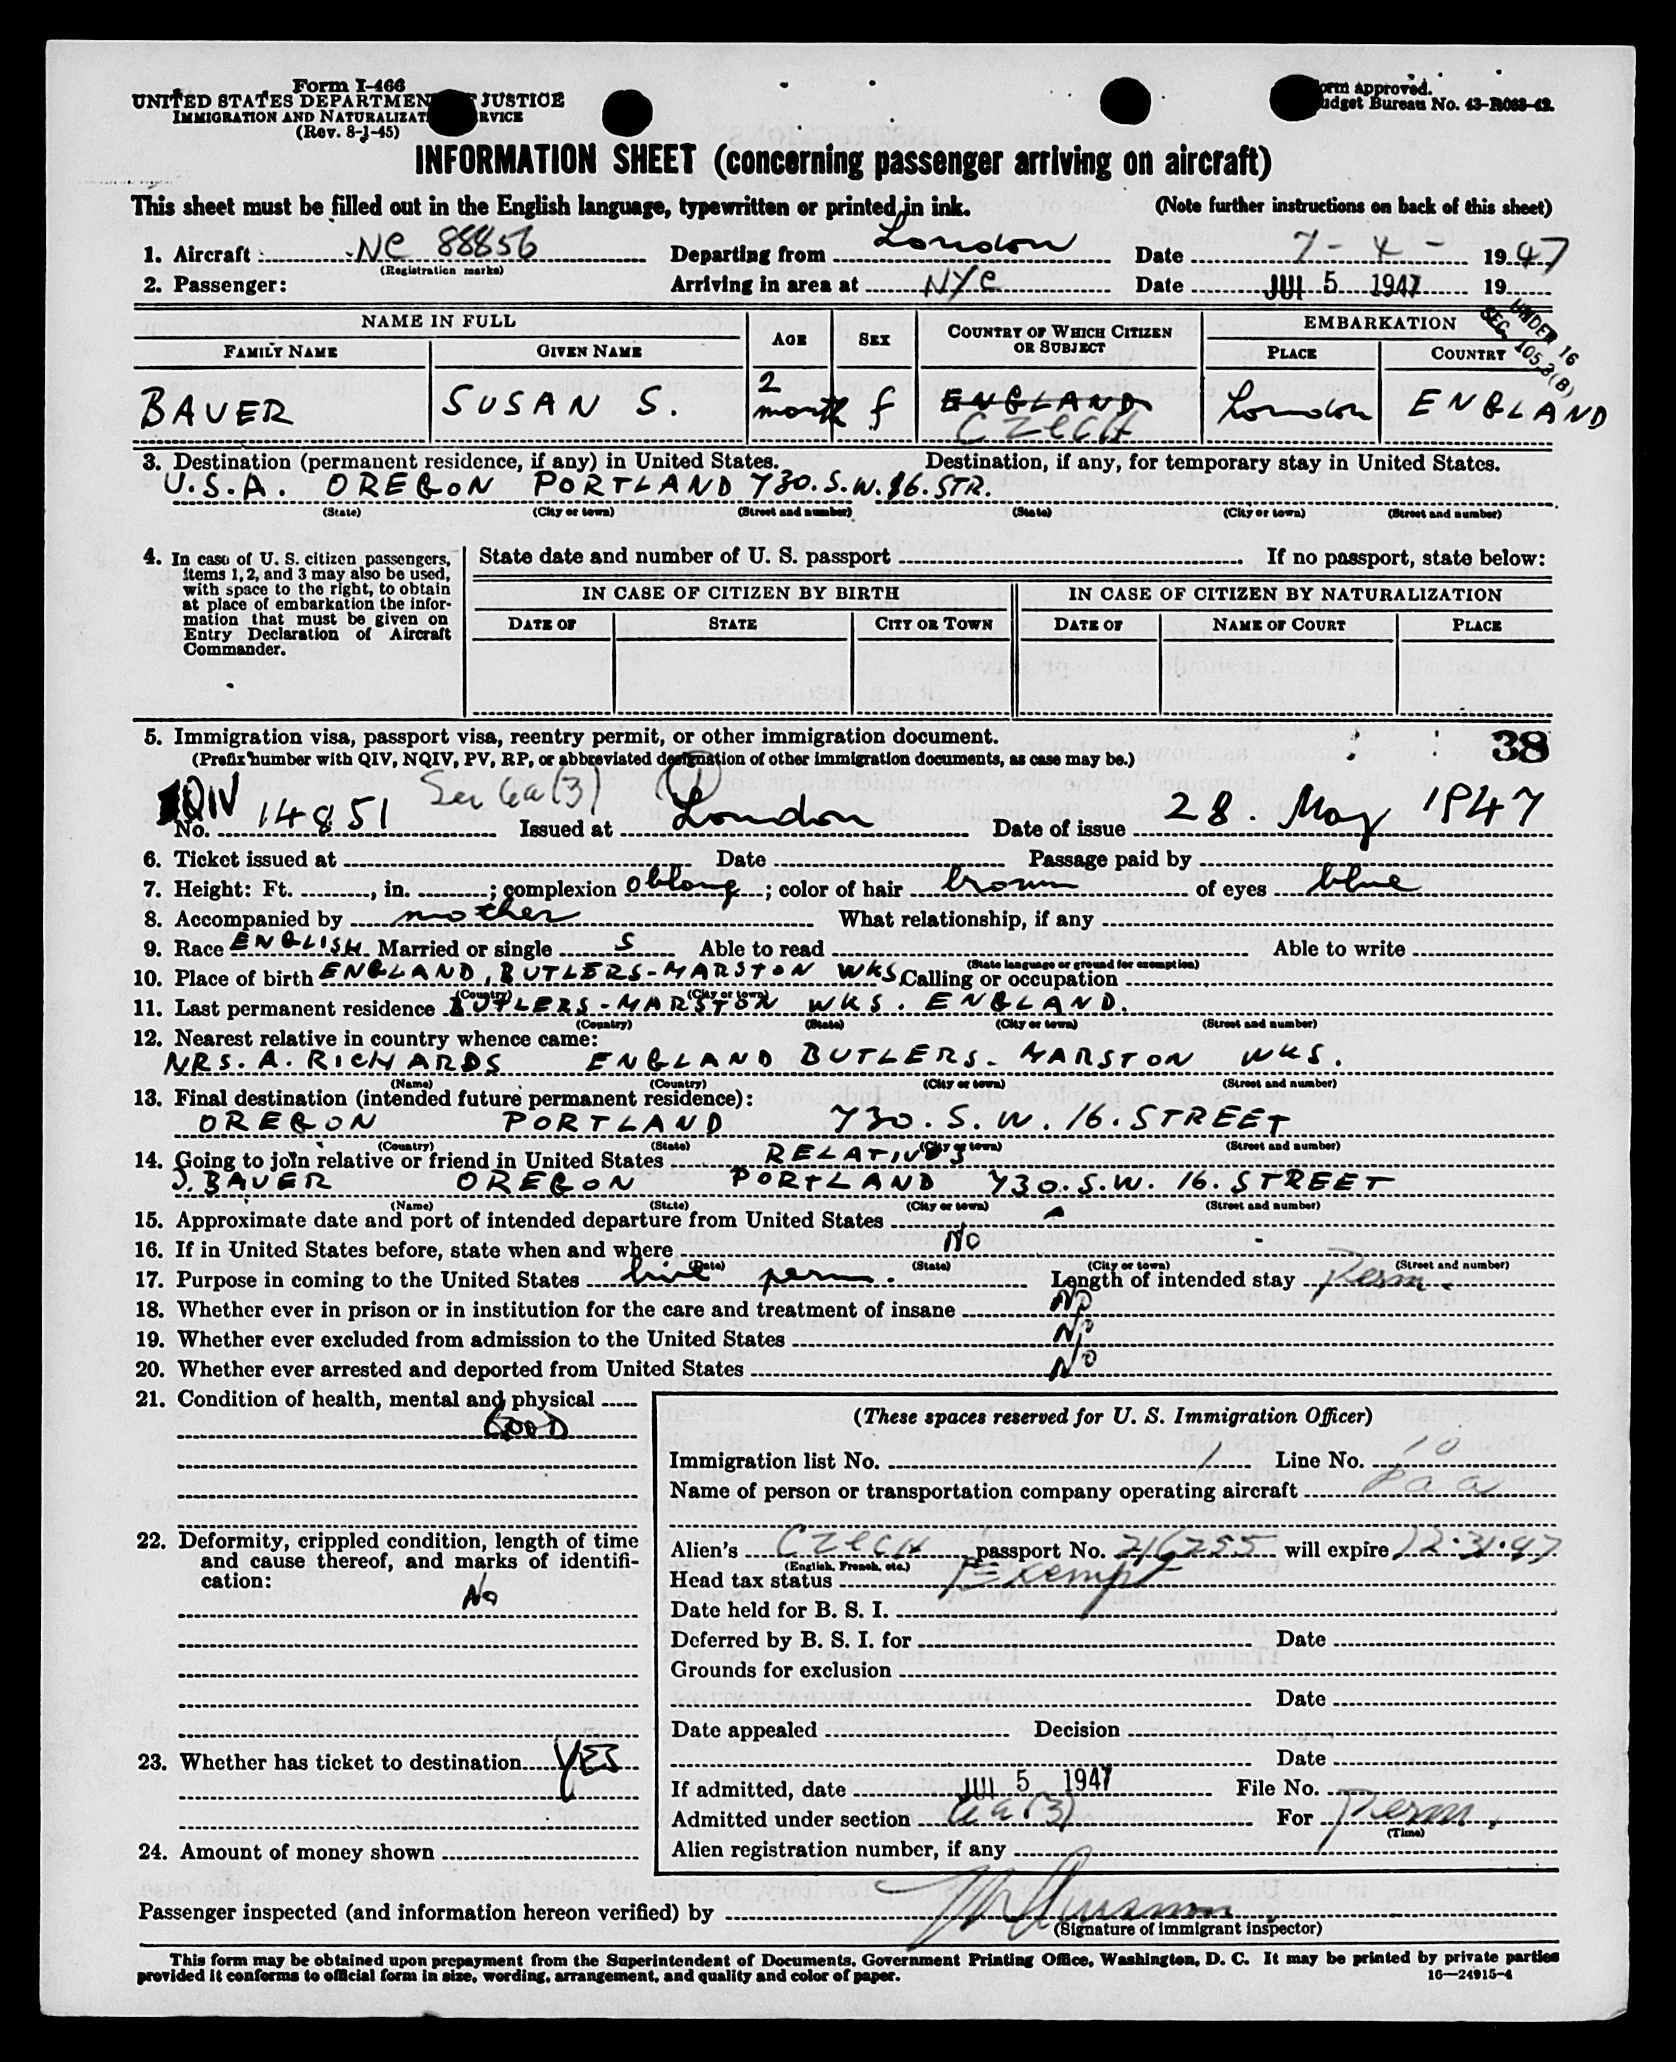 Form I-466
UNITED STATES DEPARTMENT JUSTICE
IMMIGRATION AND NATURALIZAT RVICE
(Rev. 8-1-45)
orm approved.
udget Bureau No. 43-R063-42.
INFORMATION SHEET (concerning passenger arriving on aircraft)
This sheet must be filled out in the English language, typewritten or printed in ink. (Note further instructions on back of this sheet)
1. Aircraft NC 88856 Departing from London Date 7-4- 1947
(Registration marks)
2. Passenger: Arriving in area at NYC Date JUL 5 1947 19
UNDER 16
SEC. 105.3(B)
NAME IN FULL AGE SEX COUNTRY OF WHICH CITIZEN OR SUBJECT EMBARKATION
FAMILY NAME GIVEN NAME PLACE COUNTRY
BAUER SUSAN S. 2 month f ENGLAND CZECH London ENGLAND
3. Destination (permanent residence, if any) in United States. Destination, if any, for temporary stay in United States.
U.S.A. OREGON PORTLAND 730. S.W. 16. STR.
(State) (City or town) (Street and number) (State) (City or town) (Street and number)
4. In case of U. S. citizen passengers, items 1, 2, and 3 may also be used, with space to the right, to obtain at place of embarkation the information that must be given on Entry Declaration of Aircraft Commander.
State date and number of U. S. passport If no passport, state below:
IN CASE OF CITIZEN BY BIRTH IN CASE OF CITIZEN BY NATURALIZATION
DATE OF STATE CITY OR TOWN DATE OF NAME OF COURT PLACE
5. Immigration visa, passport visa, reentry permit, or other immigration document. 38
(Prefix number with QIV, NQIV, PV, RP, or abbreviated designation of other immigration documents, as case may be.)
Sec 6a(3) (1)
QIV No. 14851 Issued at London Date of issue 28. May 1947
6. Ticket issued at Date Passage paid by
7. Height: Ft. , in. ; complexion oblong ; color of hair brown of eyes blue
8. Accompanied by mother What relationship, if any
9. Race ENGLISH Married or single S Able to read Able to write
(State language or ground for exemption)
10. Place of birth ENGLAND, BUTLERS-MARSTON WKS Calling or occupation
(Country) (City or town)
11. Last permanent residence BUTLERS-MARSTON WKS. ENGLAND.
(Country) (State) (City or town) (Street and number)
12. Nearest relative in country whence came:
MRS. A. RICHARDS ENGLAND BUTLERS-MARSTON WKS.
(Name) (Country) (City or town) (Street and number)
13. Final destination (intended future permanent residence):
OREGON PORTLAND 730. S.W. 16. STREET
(Country) (State) (City or town) (Street and number)
14. Going to join relative or friend in United States RELATIVES
J. BAUER OREGON PORTLAND 730. S.W. 16. STREET
(Name) (State) (City or town) (Street and number)
15. Approximate date and port of intended departure from United States
16. If in United States before, state when and where No
(Date) (State) (City or town) (Street and number)
17. Purpose in coming to the United States live perm. Length of intended stay Perm.
18. Whether ever in prison or in institution for the care and treatment of insane No
19. Whether ever excluded from admission to the United States No
20. Whether ever arrested and deported from United States No
21. Condition of health, mental and physical
GOOD
22. Deformity, crippled condition, length of time and cause thereof, and marks of identification:
No
23. Whether has ticket to destination YES
24. Amount of money shown
(These spaces reserved for U. S. Immigration Officer)
Immigration list No. 1 Line No. 10
Name of person or transportation company operating aircraft Paa
Alien's CZECH passport No. 216255 will expire 12.31.47
(English, French, etc.)
Head tax status Exempt
Date held for B. S. I.
Deferred by B. S. I. for Date
Grounds for exclusion
Date
Date appealed Decision
Date
If admitted, date JUL 5 1947 File No.
Admitted under section 6a(3) For Perm.
(Time)
Alien registration number, if any
Passenger inspected (and information hereon verified) by
(Signature of immigrant inspector)
This form may be obtained upon prepayment from the Superintendent of Documents, Government Printing Office, Washington, D. C. It may be printed by private parties
provided it conforms to official form in size, wording, arrangement, and quality and color of paper. 16—24915-4